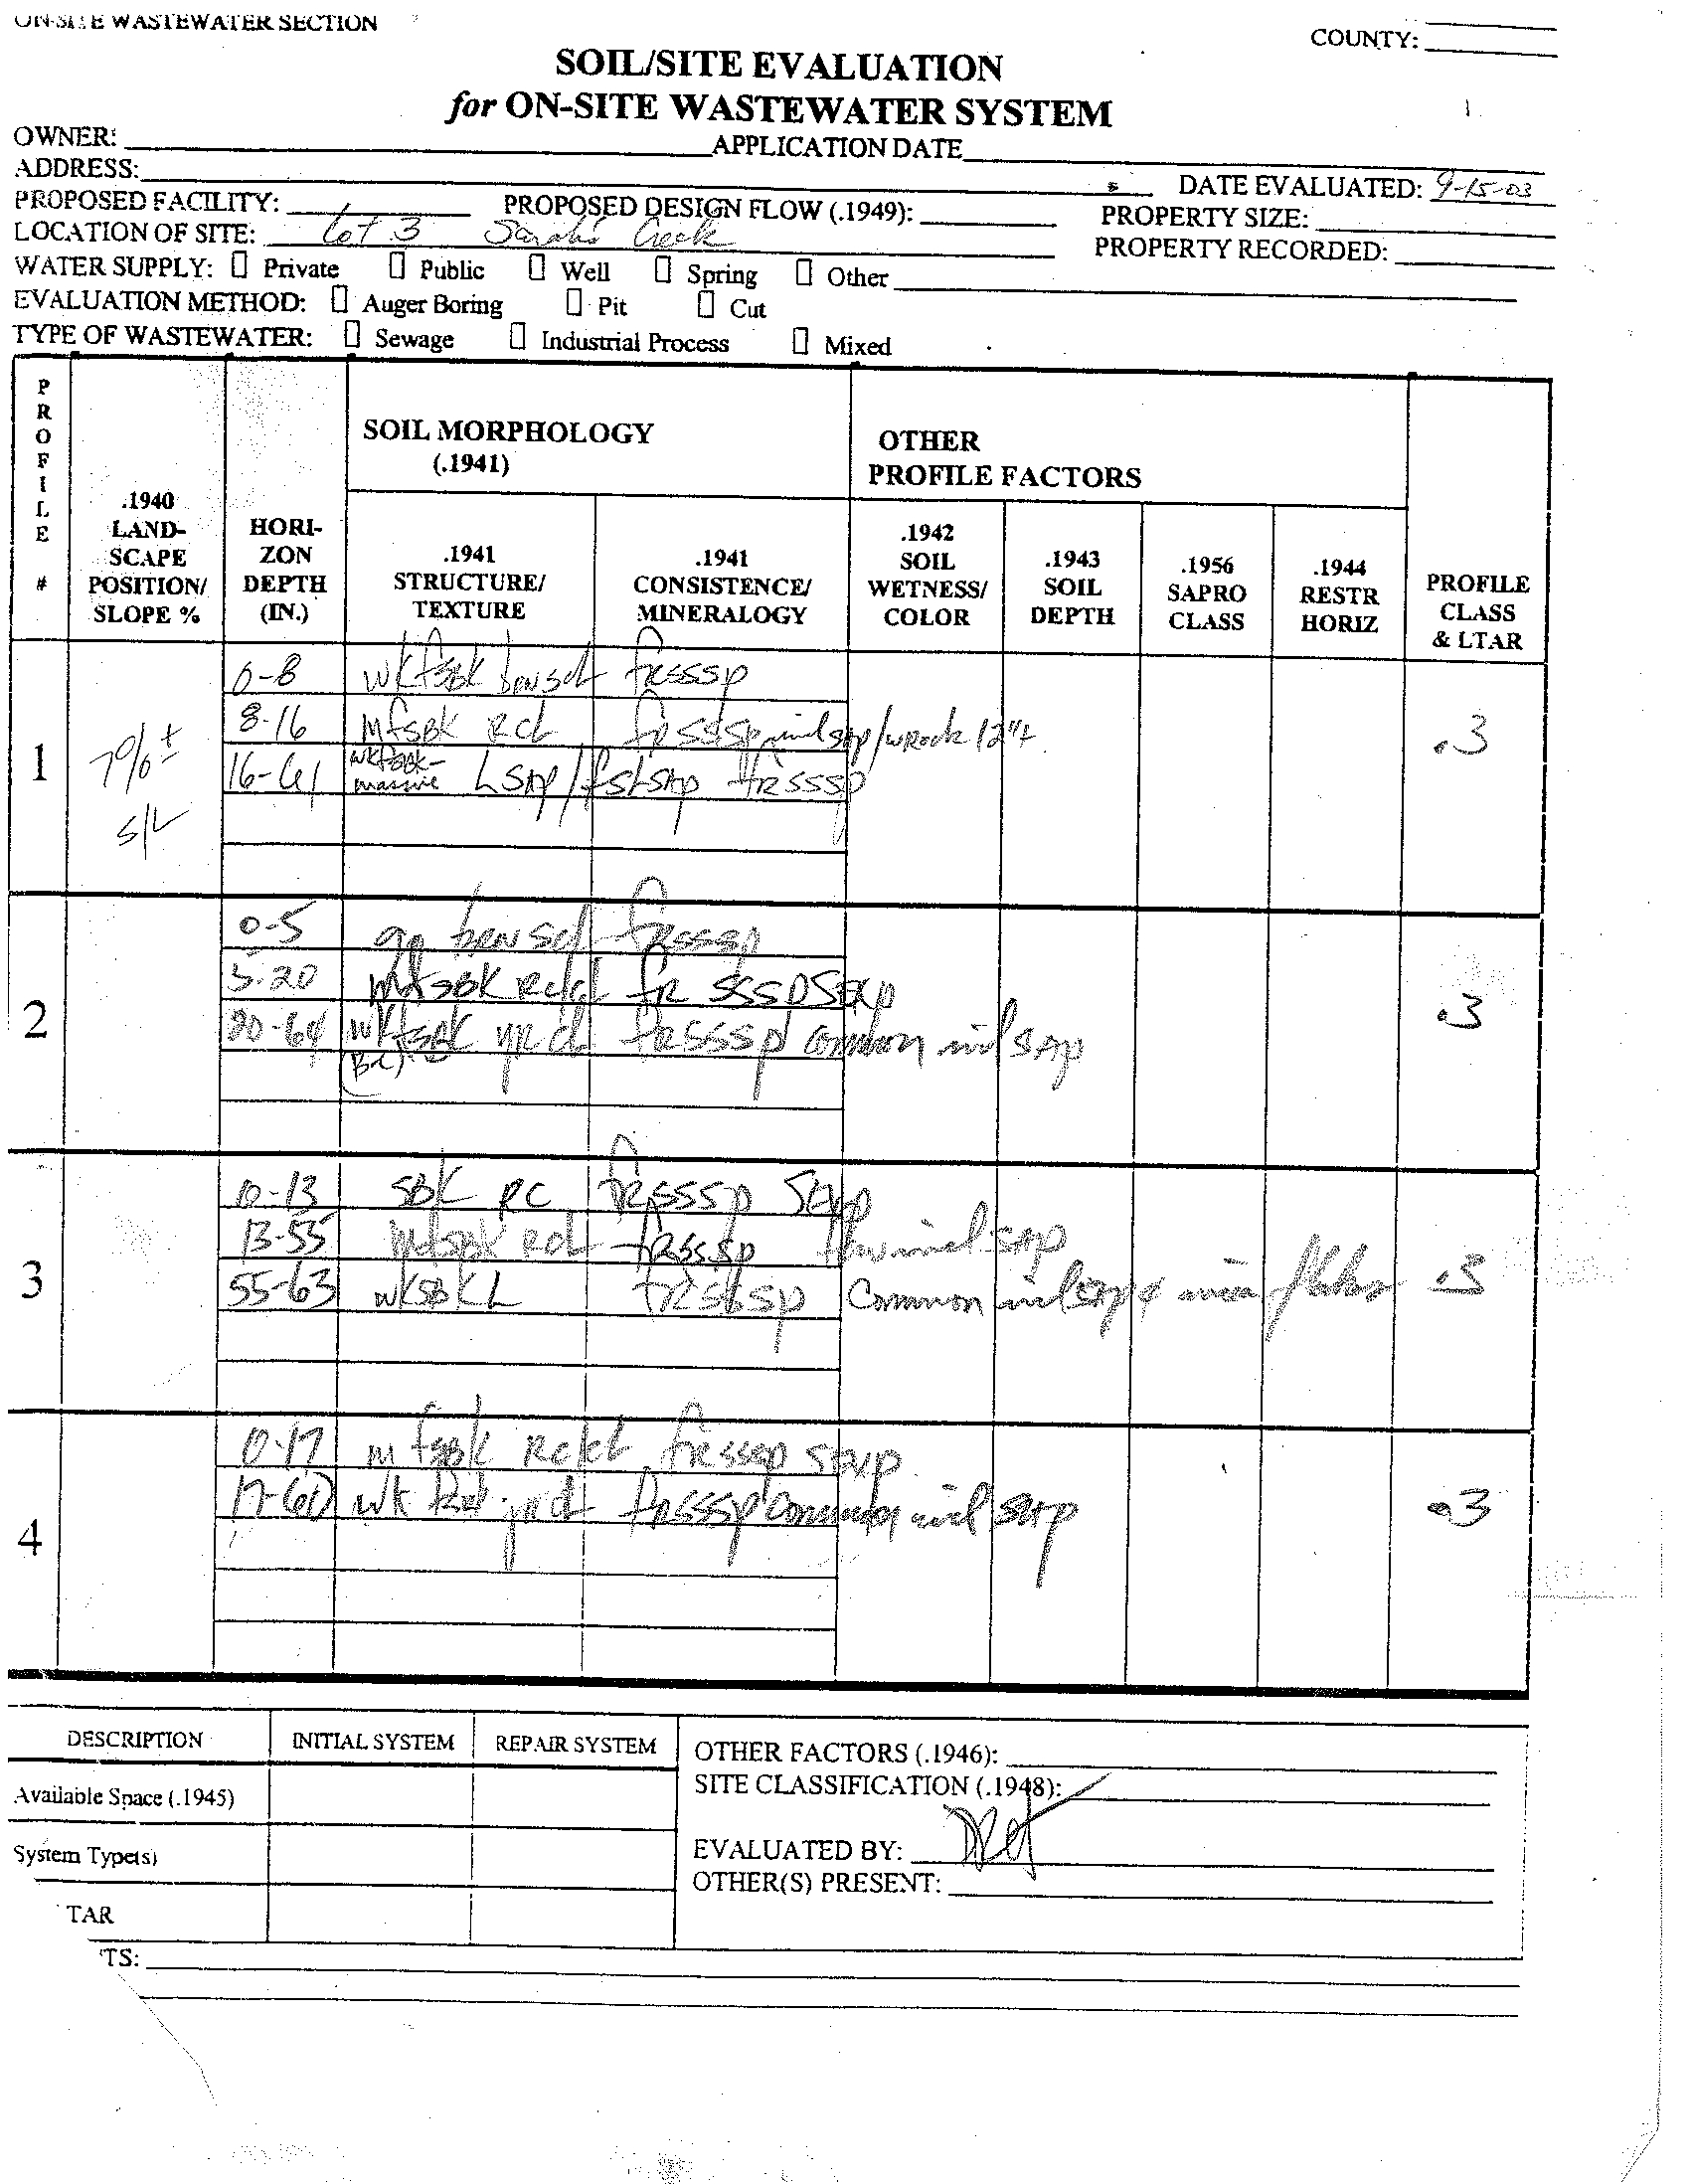 ON-SITE WASTEWATER SECTION
COUNTY:
SOIL/SITE EVALUATION
for ON-SITE WASTEWATER SYSTEM
OWNER: APPLICATION DATE
ADDRESS:
DATE EVALUATED: 9-15-03
PROPOSED FACILITY: PROPOSED DESIGN FLOW (.1949): PROPERTY SIZE:
LOCATION OF SITE: Lot 3 Sarahs Creek PROPERTY RECORDED:
WATER SUPPLY: Private Public Well Spring Other
EVALUATION METHOD: Auger Boring Pit Cut
TYPE OF WASTEWATER: Sewage Industrial Process Mixed
PROFILE #
.1940 LAND-SCAPE POSITION/ SLOPE %
HORI-ZON DEPTH (IN.)
SOIL MORPHOLOGY (.1941)
.1941 STRUCTURE/ TEXTURE
.1941 CONSISTENCE/ MINERALOGY
OTHER PROFILE FACTORS
.1942 SOIL WETNESS/ COLOR
.1943 SOIL DEPTH
.1956 SAPRO CLASS
.1944 RESTR HORIZ
PROFILE CLASS & LTAR
1 7%± S/L .3
0-8 wkfsbk brnscl frsssp
8-16 mfsbk RCL frsssp minl sap/wRock 12"+
16-61 wkfsbk-massive LSAP/fslsap frsssp
2 .3
0-5 gr brn scl frsssp
5-20 mfsbk Rc/cl fr sssp SEXP
20-64 wkfsbk yr cl frsssp common minl SAP
(BC)
3 .3
0-13 SBK RC frsssp SEXP
13-55 mfsbk RCL frsssp few minl SAP
55-63 wkSBK L frsssp Common minl sap & mica flakes
4 .3
0-17 m fsbk Rc/cl frsssp SEXP
17-60 wk yrcl frsssp common minl sap
DESCRIPTION INITIAL SYSTEM REPAIR SYSTEM
Available Space (.1945)
System Type(s)
TAR
OTHER FACTORS (.1946):
SITE CLASSIFICATION (.1948):
EVALUATED BY:
OTHER(S) PRESENT:
TS: